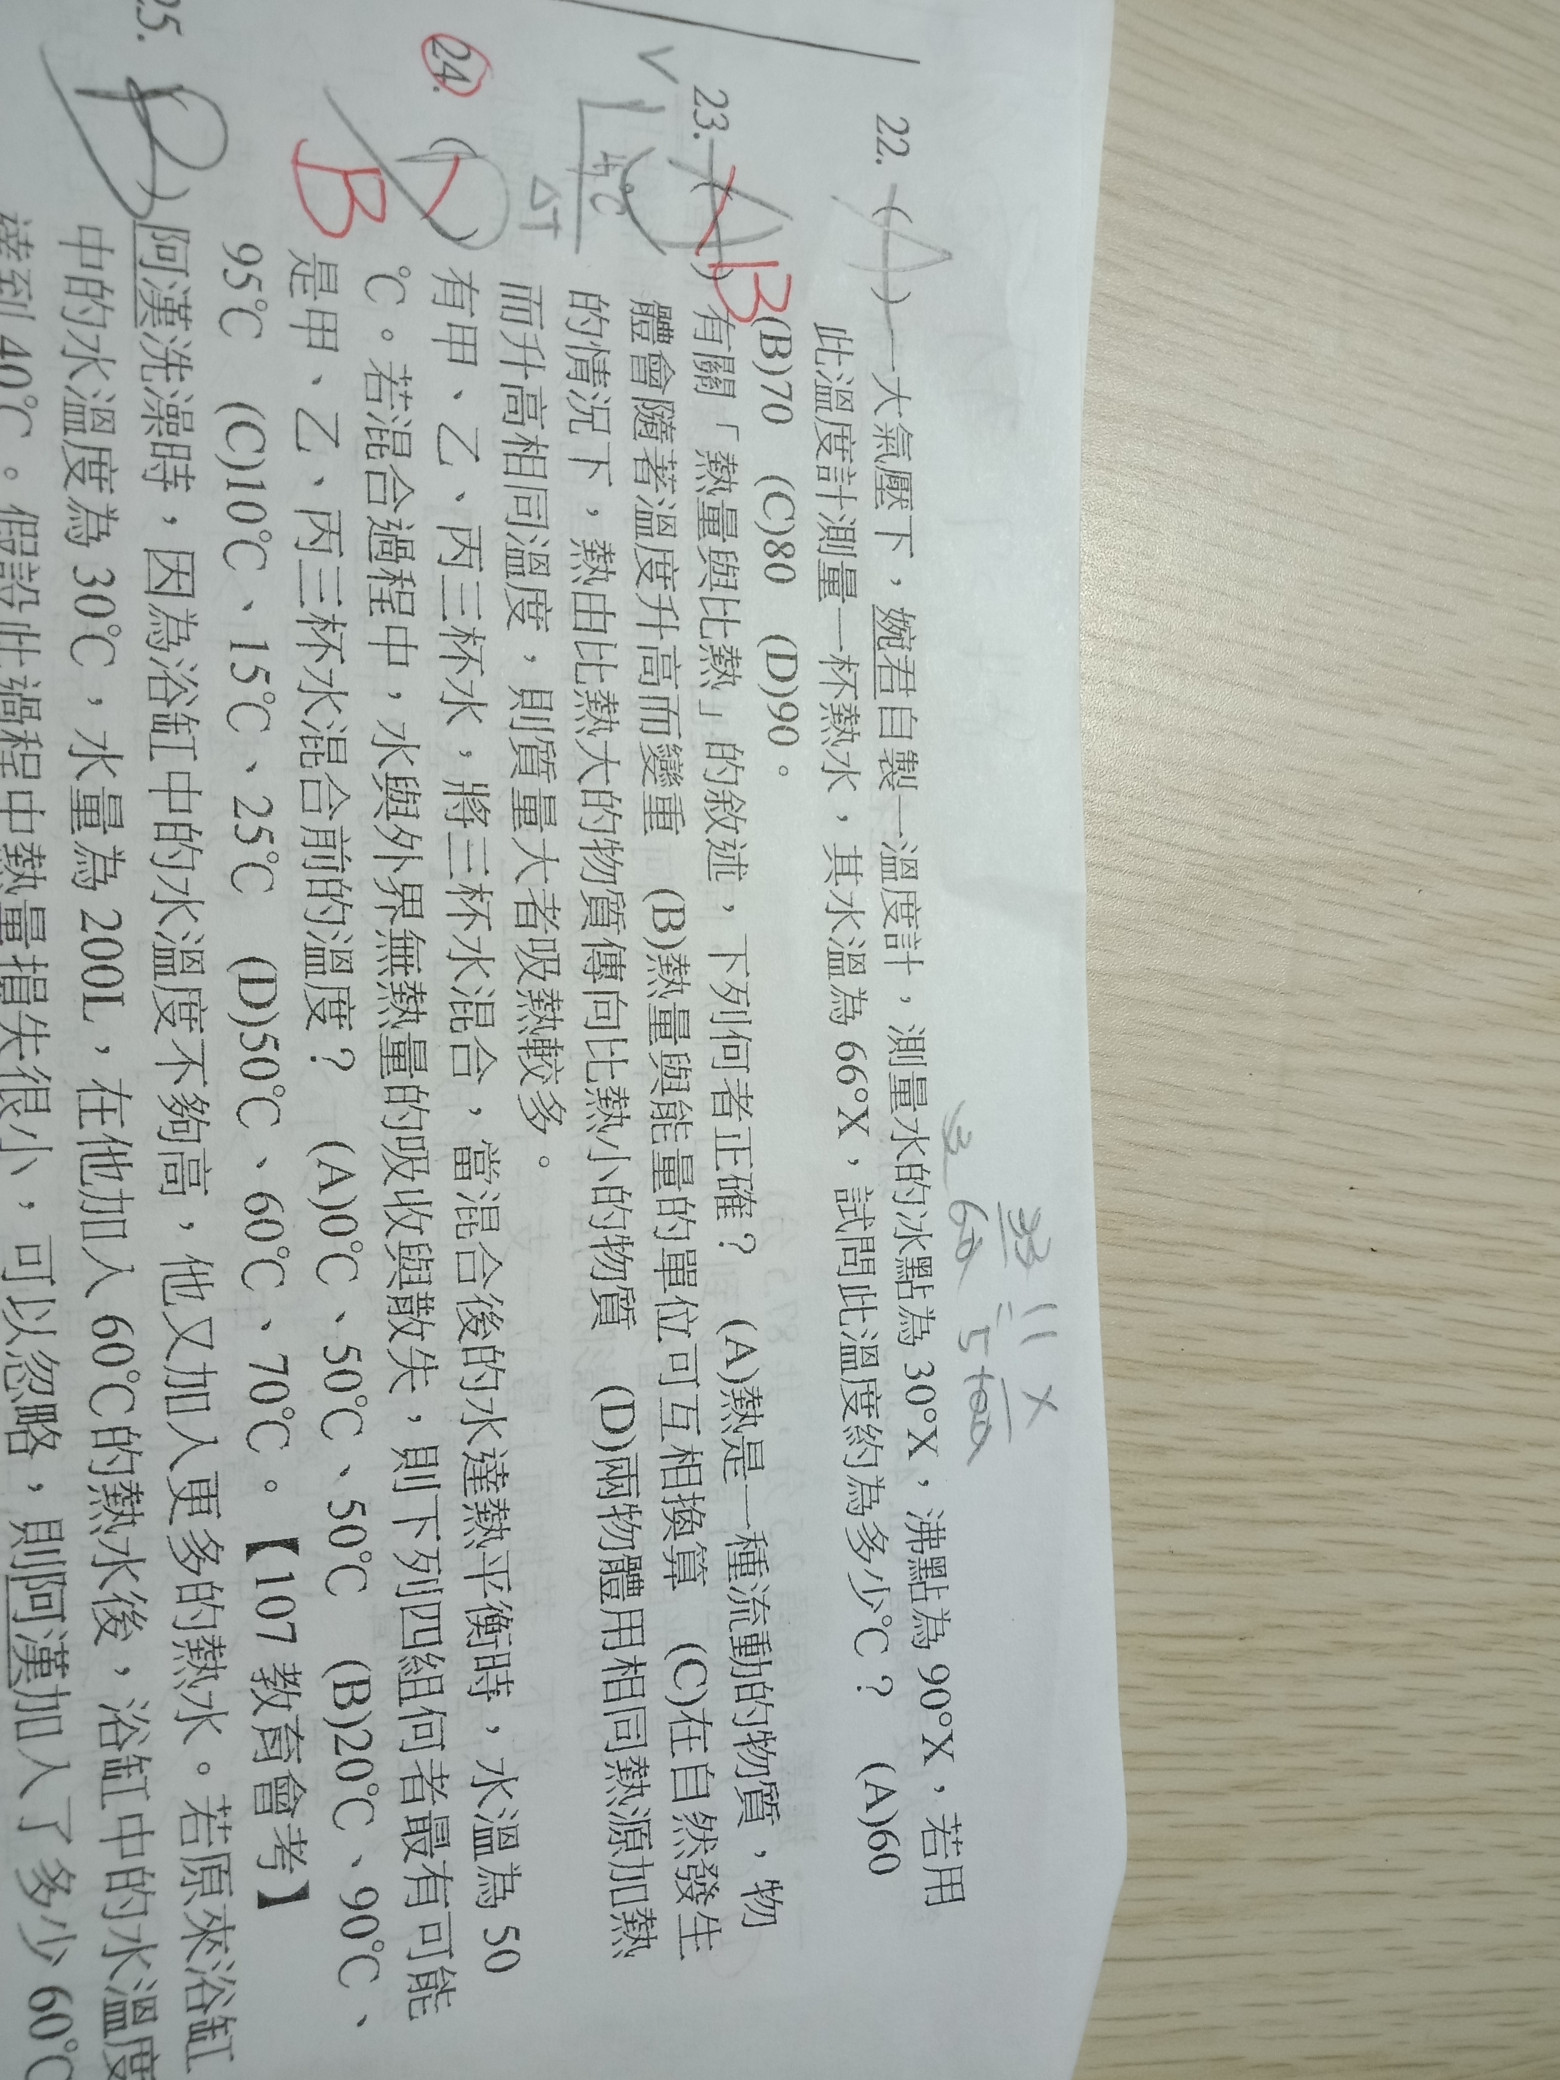 33 = 11 X
3 60 = 5 100
22. (A) 一大氣壓下，婉君自製一溫度計，測量水的冰點為 30°X，沸點為 90°X，若用
此溫度計測量一杯熱水，其水溫為 66°X，試問此溫度約為多少℃？ (A)60
(B)70 (C)80 (D)90。
23. (A) B 有關「熱量與比熱」的敘述，下列何者正確？ (A)熱是一種流動的物質，物
體會隨著溫度升高而變重 (B)熱量與能量的單位可互相換算 (C)在自然發生
的情況下，熱由比熱大的物質傳向比熱小的物質 (D)兩物體用相同熱源加熱
而升高相同溫度，則質量大者吸熱較多。
1℃
ΔT
24. (D) 有甲、乙、丙三杯水，將三杯水混合，當混合後的水達熱平衡時，水溫為 50
℃。若混合過程中，水與外界無熱量的吸收與散失，則下列四組何者最有可能
B 是甲、乙、丙三杯水混合前的溫度？ (A)0℃、50℃、50℃ (B)20℃、90℃、
95℃ (C)10℃、15℃、25℃ (D)50℃、60℃、70℃。【107 教育會考】
25. ) 阿漢洗澡時，因為浴缸中的水溫度不夠高，他又加入更多的熱水。若原來浴缸
中的水溫度為 30℃，水量為 200L，在他加入 60℃的熱水後，浴缸中的水溫度
達到 40℃。假設此過程中熱量損失很小，可以忽略，則阿漢加入了多少 60℃